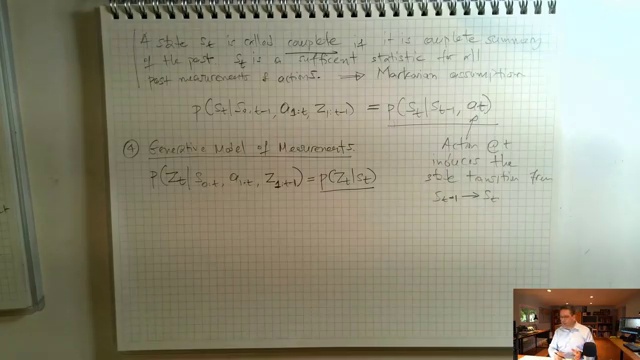 A state St is called complete if it is complete summary
of the past St is a sufficent statistic for all
past measurements & actions. ⟹ Markovian assumption
p(St|S0:t-1, a1:t, Z1:t-1) = p(St|St-1, at)
Action @ t
induces the
state transition from
St-1 → St
④ Generative Model of Measurements
p(Zt|S0:t, a1:t, Z1:t-1) = p(Zt|St)